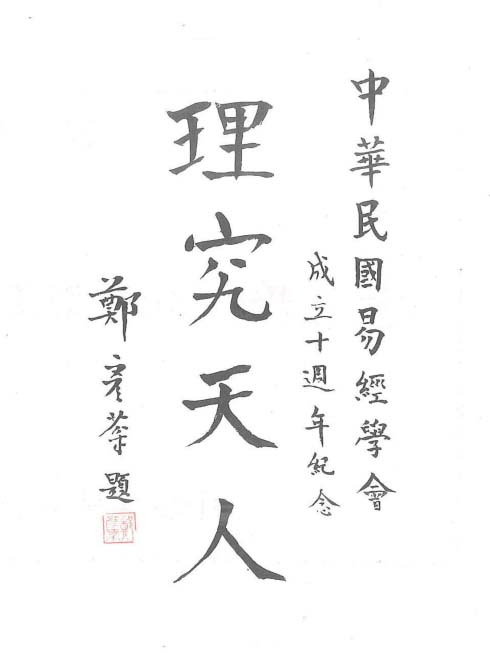 中華民國易經學會
成立十週年紀念
理究天人
鄭彥棻題